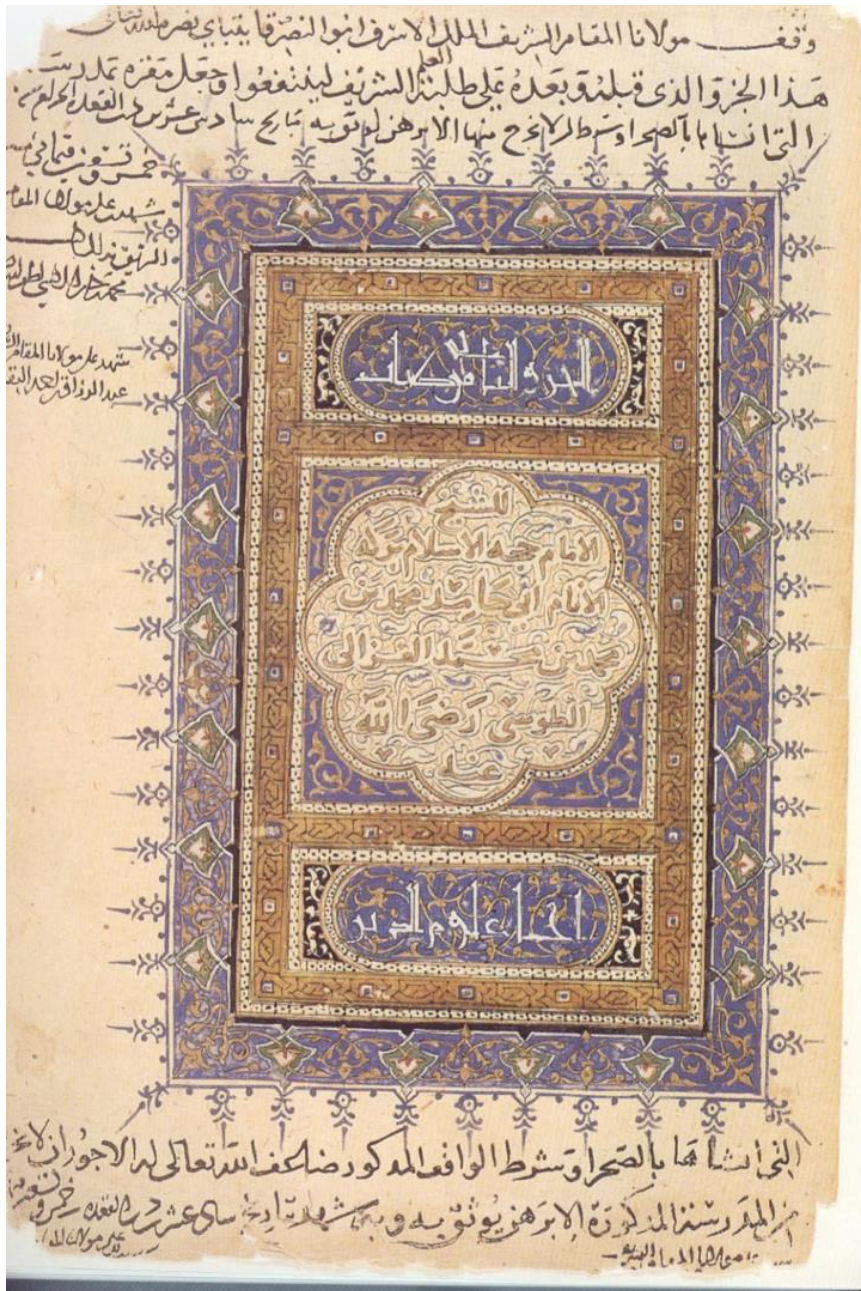 وقف مولانا المقام الشريف الملك الاشرف ابو النصر قايتباي نصره الله
هذا الجزو الذى قبله وبعده على طلبة العلم الشريف لينتفعوا وجعل مقره بمدرسته
التى انشاها بالصحرا وشرط ان لا يخرج منها الا برهن يوثق به بتاريخ سادس عشر القعده الحرام
شهد على مولانا المقام
شهد على مولانا المقام
عبد الرزاق
الجزء الثانى من كتاب
للشيخ
الامام حجه الاسلام بركه
الانام ابى حامد محمد بن
محمد بن محمد الغزالى
الطوسى رضى الله
عنه
احيا علوم الدين
التى انشاها بالصحرا وشرط الواقف المذكور ضاعف الله تعالى له الاجور ان لا
من المدرسة المذكورة الا برهن يوثق به وبه شهد بتاريخ سادس عشر القعده